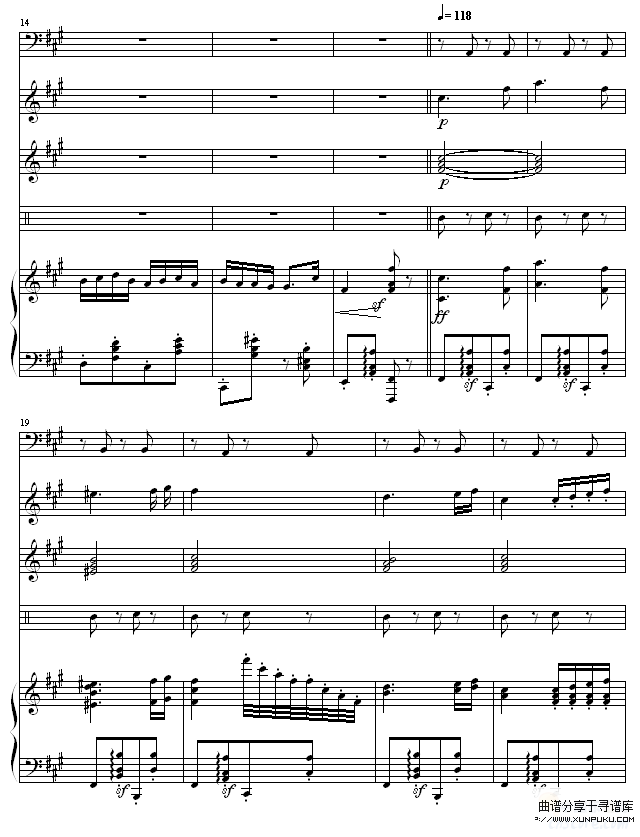 14
♩= 118
p
p
sf
ff
sf
sf
19
sf
sf
sf
sf
曲谱分享于寻谱库
?://www.xunpuku.com